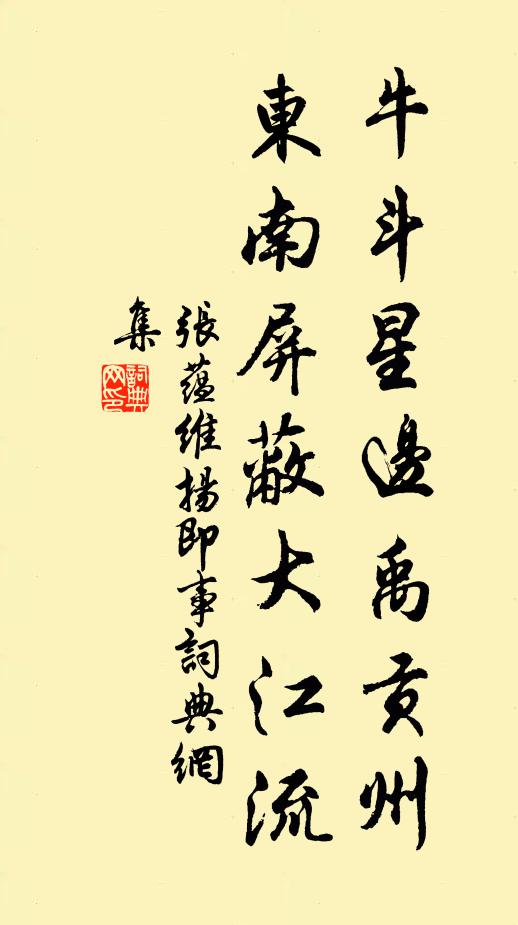 牛斗星邊禹貢州
東南屏蔽大江流
張蘊維揚即事詞典網
集
詞典
网印